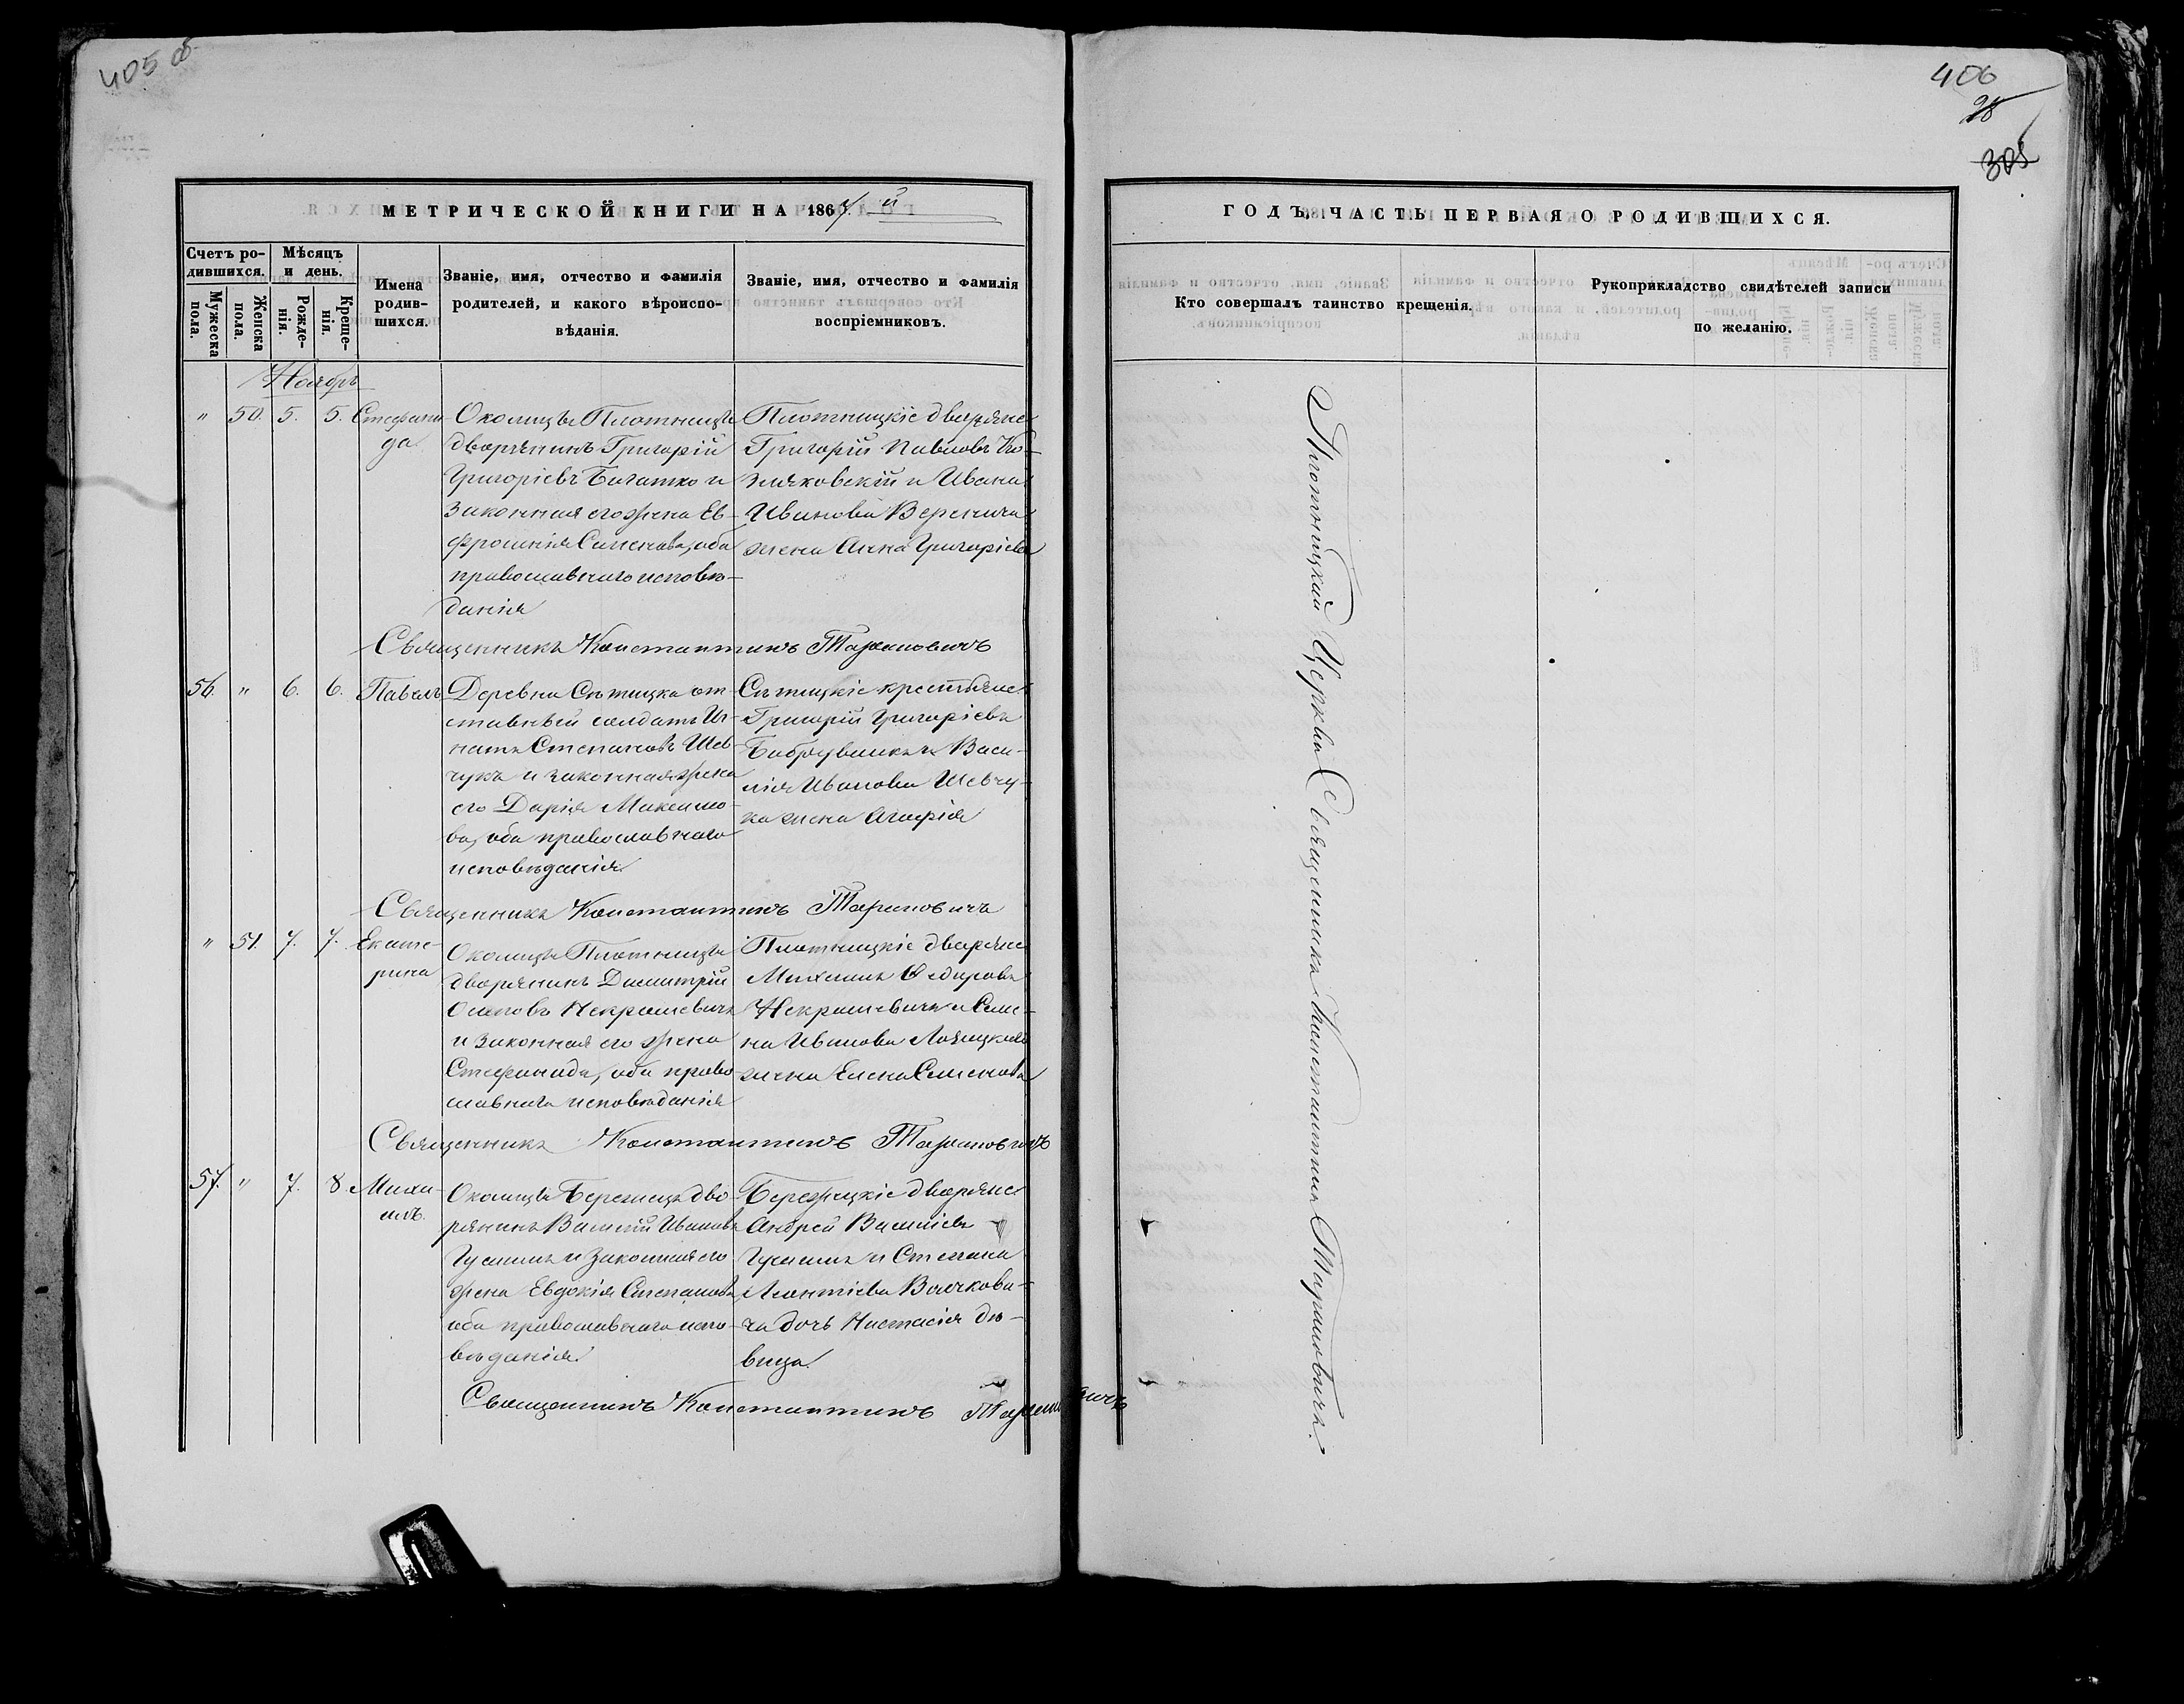 405 об
МЕТРИЧЕСКОЙ КНИГИ НА 1867. й
Счетъ ро-
дившихся.
Мужеска
пола.
Женска
пола.
Мѣсяцъ
и день.
Рожде-
нія.
Креще-
нія.
Имена
родив-
шихся.
Званіе, имя, отчество и фамилія
родителей, и какого вѣроиспо-
вѣданія.
Званіе, имя, отчество и фамилія
воспріемниковъ.
Ноябрь
" 50. 5. 5. Стефани
да
Околицы Плотницы
дворянинъ Григорій
Григоріевъ Богатко и
законная его жена Ев-
фросинія Семенова, оба
православнаго исповѣ-
данія
Плотницкіе дворяне
Григорій Павловъ Ко-
зляковскій и Ивана
Иванова Веренича
жена Анна Григоріева
Священникъ Константинъ Тарановичъ
56. " 6. 6. Павелъ
Деревни Сѣтицка от-
ставный солдатъ Иг-
натъ Степановъ Шев-
чукъ и законная жена
его Дарія Максимо-
ва, оба православнаго
исповѣданія
Сѣтицкіе крестьяне
Григорій Григоріевъ
и Васи-
лія Иванова Шевчу-
ка жена Агафія
Священникъ Константинъ Тарановичъ
" 51. 7. 7. Екате-
рина
Околицы Плотницы
дворянинъ Димитрій
Осиповъ Некрашевичъ
и законная его жена
Стефанида, оба право
славнаго исповѣданія
Плотницкіе дворяне
Михаилъ Федоровъ
Некрашевичъ и Семе-
на Иванова
жена Елена Семенова
Священникъ Константинъ Тарановичъ
57. " 7. 8. Миха-
илъ.
Околицы Бережицъ дво
рянинъ Василій Ивановъ
и законная его
жена Евдокія Степанова,
оба православнаго испо-
вѣданія
Бережицкіе дворяне
Андрей Василіевъ
и Степана
Леонтіева Вачкови-
ча дочь Настасія дѣ-
вица
Священникъ Константинъ Тарановичъ
406
98
305
ГОДЪ, ЧАСТЬ ПЕРВАЯ О РОДИВШИХСЯ.
Кто совершалъ таинство крещенія.
Рукоприкладство свидѣтелей записи
по желанію.
Плотницкой Церкви Священникъ Константинъ Тарановичъ.